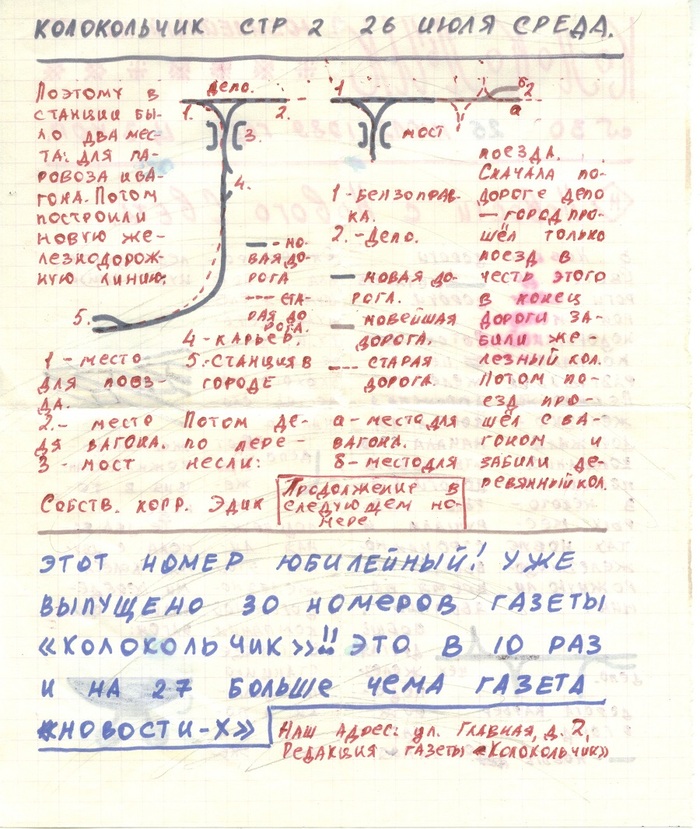 КОЛОКОЛЬЧИК СТР 2 26 ИЮЛЯ СРЕДА.
ПОЭТОМУ В
СТАНЦИИ БЫ-
ЛО ДВА МЕС-
ТА: ДЛЯ ПА-
РОВОЗА И ВА-
ГОНА. ПОТОМ
ПОСТРОИЛИ
НОВУЮ ЖЕ-
ЛЕЗНОДОРОЖ-
НУЮ ЛИНИЮ:
ДЕПО.
1.
2.
3.
4.
5.
— НО-
ВАЯ ДО-
РОГА
--- СТА-
РАЯ ДО
РОГА.
1 - МЕСТО
ДЛЯ ПОЕЗ-
ДА.
2. - МЕСТО
ДЛЯ ВАГОНА.
3 - МОСТ
4 - КАРЬЕР.
5. - СТАНЦИЯ В
ГОРОДЕ
ПОТОМ ДЕ-
ПО ПЕРЕ-
НЕСЛИ:
1
МОСТ
б
2
а
1 - БЕНЗОПРАВ-
КА.
2. - ДЕПО.
— НОВАЯ ДО-
РОГА.
— НОВЕЙШАЯ
ДОРОГА.
--- СТАРАЯ
ДОРОГА.
а - МЕСТО ДЛЯ
ВАГОНА.
б - МЕСТО ДЛЯ
ПОЕЗДА.
СНАЧАЛА ПО-
ДОРОГЕ ДЕПО
— ГОРОД ПРО-
ШЁЛ ТОЛЬКО
ПОЕЗД В
ЧЕСТЬ ЭТОГО
В КОНЕЦ
ДОРОГИ ЗА-
БИЛИ ЖЕ-
ЛЕЗНЫЙ КОЛ.
ПОТОМ ПО-
ЕЗД ПРО-
ШЁЛ С ВА-
ГОНОМ И
ЗАБИЛИ ДЕ-
РЕВЯННЫЙ КОЛ.
СОБСТВ. КОРР. ЭДИК
ПРОДОЛЖЕНИЕ В
СЛЕДУЮЩЕМ НО-
МЕРЕ
ЭТОТ НОМЕР ЮБИЛЕЙНЫЙ! УЖЕ
ВЫПУЩЕНО 30 НОМЕРОВ ГАЗЕТЫ
«КОЛОКОЛЬЧИК»!! ЭТО В 10 РАЗ
И НА 27 БОЛЬШЕ ЧЕМА ГАЗЕТА
«НОВОСТИ-Х»
НАШ АДРЕС: УЛ. ГЛАВНАЯ, Д. 2,
РЕДАКЦИЯ ГАЗЕТЫ «КОЛОКОЛЬЧИК»